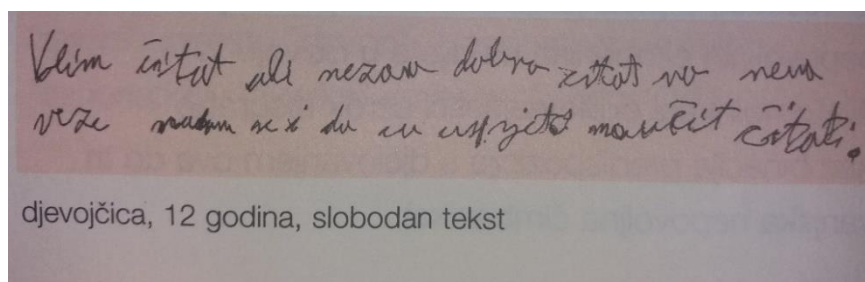 Volim čitat ali neznam dobro čitat no nema
veze nadam se i da ću uspjeti naučit čitati.
djevojčica, 12 godina, slobodan tekst